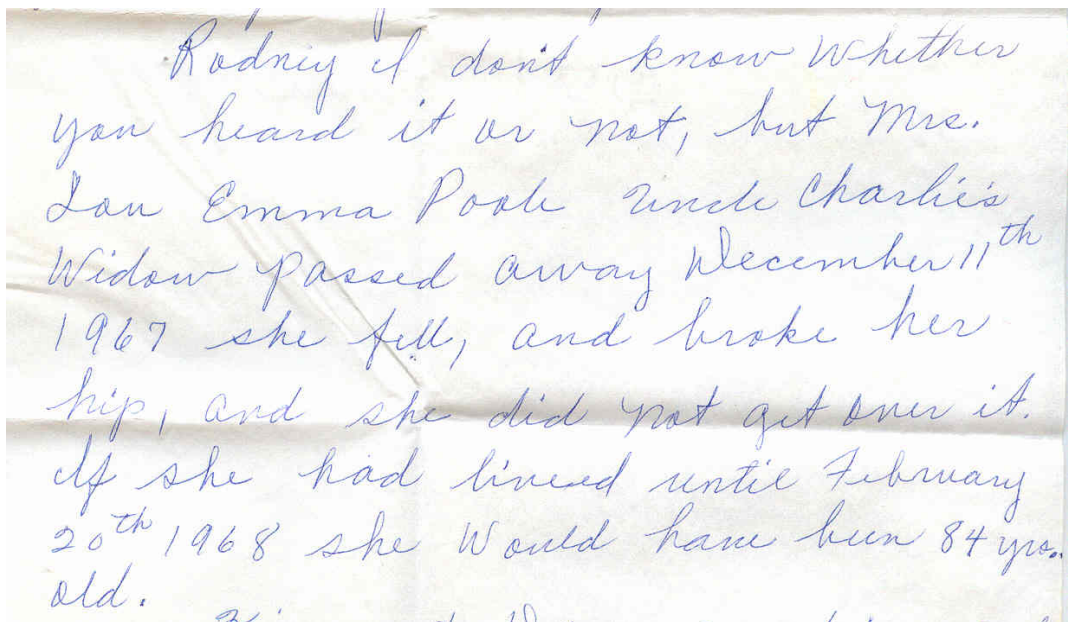 Rodney I don't know Whether
you heard it or not, but Mrs.
Lou Emma Poole Uncle Charlie's
Widow passed away December 11th
1967 she fell, and broke her
hip, and she did not get over it.
If she had liveed until February
20th 1968 she Would have been 84 yrs.
old.